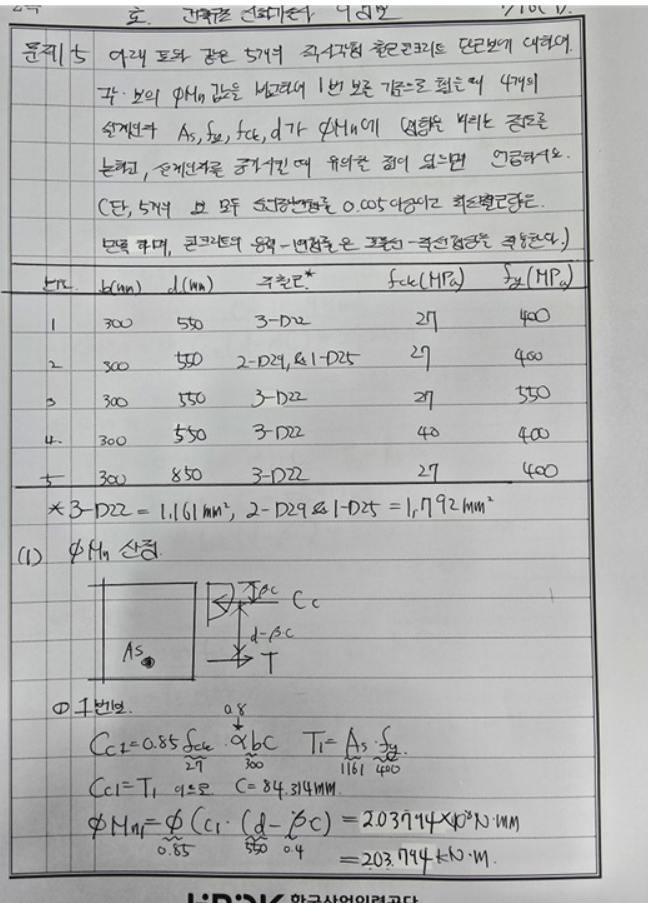 문제 5 아래 표와 같은 5개의 직사각형 철근콘크리트 단근보에 대하여,
각 보의 ϕMn 값을 비교하여 1번 보를 기준으로 했을 때 4개의
설계인자 As, fy, fck, d가 ϕMn에 영향을 미치는 정도를
논하고, 설계인자를 증가시킬 때 유의할 점이 있으면 언급하시오.
(단, 5개의 보 모두 순인장변형률 0.005 이상이고 최소철근량은
만족 하며, 콘크리트의 응력-변형률은 포물선-직선형상을 적용한다.)
b(mm) d(mm) 주철근* fck(MPa) fy(MPa)
1 300 550 3-D22 27 400
2 300 550 2-D29, & 1-D25 27 400
3 300 550 3-D22 27 550
4. 300 550 3-D22 40 400
5 300 850 3-D22 27 400
* 3-D22 = 1,161mm², 2-D29 & 1-D25 = 1,792mm²
(1) ϕMn 산정
βc Cc
d-βc
As T
① 1번보.
0.8
Cc1=0.85 fck·αbc T1=As·fy.
27 300 1161 400
Cc1=T1 이므로 C=84.314mm.
ϕMn1=ϕCc1·(d-βc) =2.03794×10⁸N·mm
0.85 550 0.4
=203.794kN·m.
한국산업인력공단